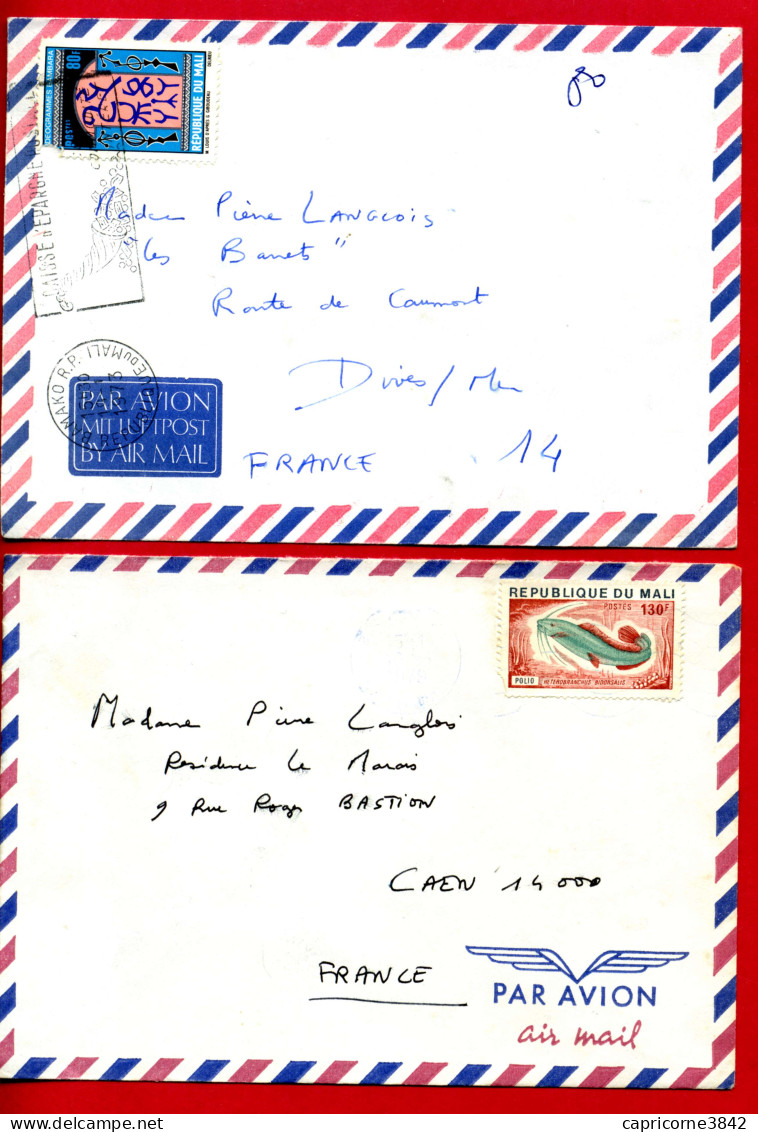 IDEOGRAMMES BAMBARA
80F
postes
REPUBLIQUE DU MALI
CAISSE D'EPARGNE POSTALE
Madame Pierre LANGLOIS
"Les Banets"
Route de Caumont
Dives/Mer
FRANCE 14
BAMAKO R.P.
REPUBLIQUE DU MALI
PAR AVION
MIT LUFTPOST
BY AIR MAIL
REPUBLIQUE DU MALI
POSTES 130F
POLIO HETEROBRANCHUS BIDORSALIS
Madame Pierre Langlois
Residence Le Marais
9 Rue Roger BASTION
CAEN 14000
FRANCE
PAR AVION
air mail
capricorne3842